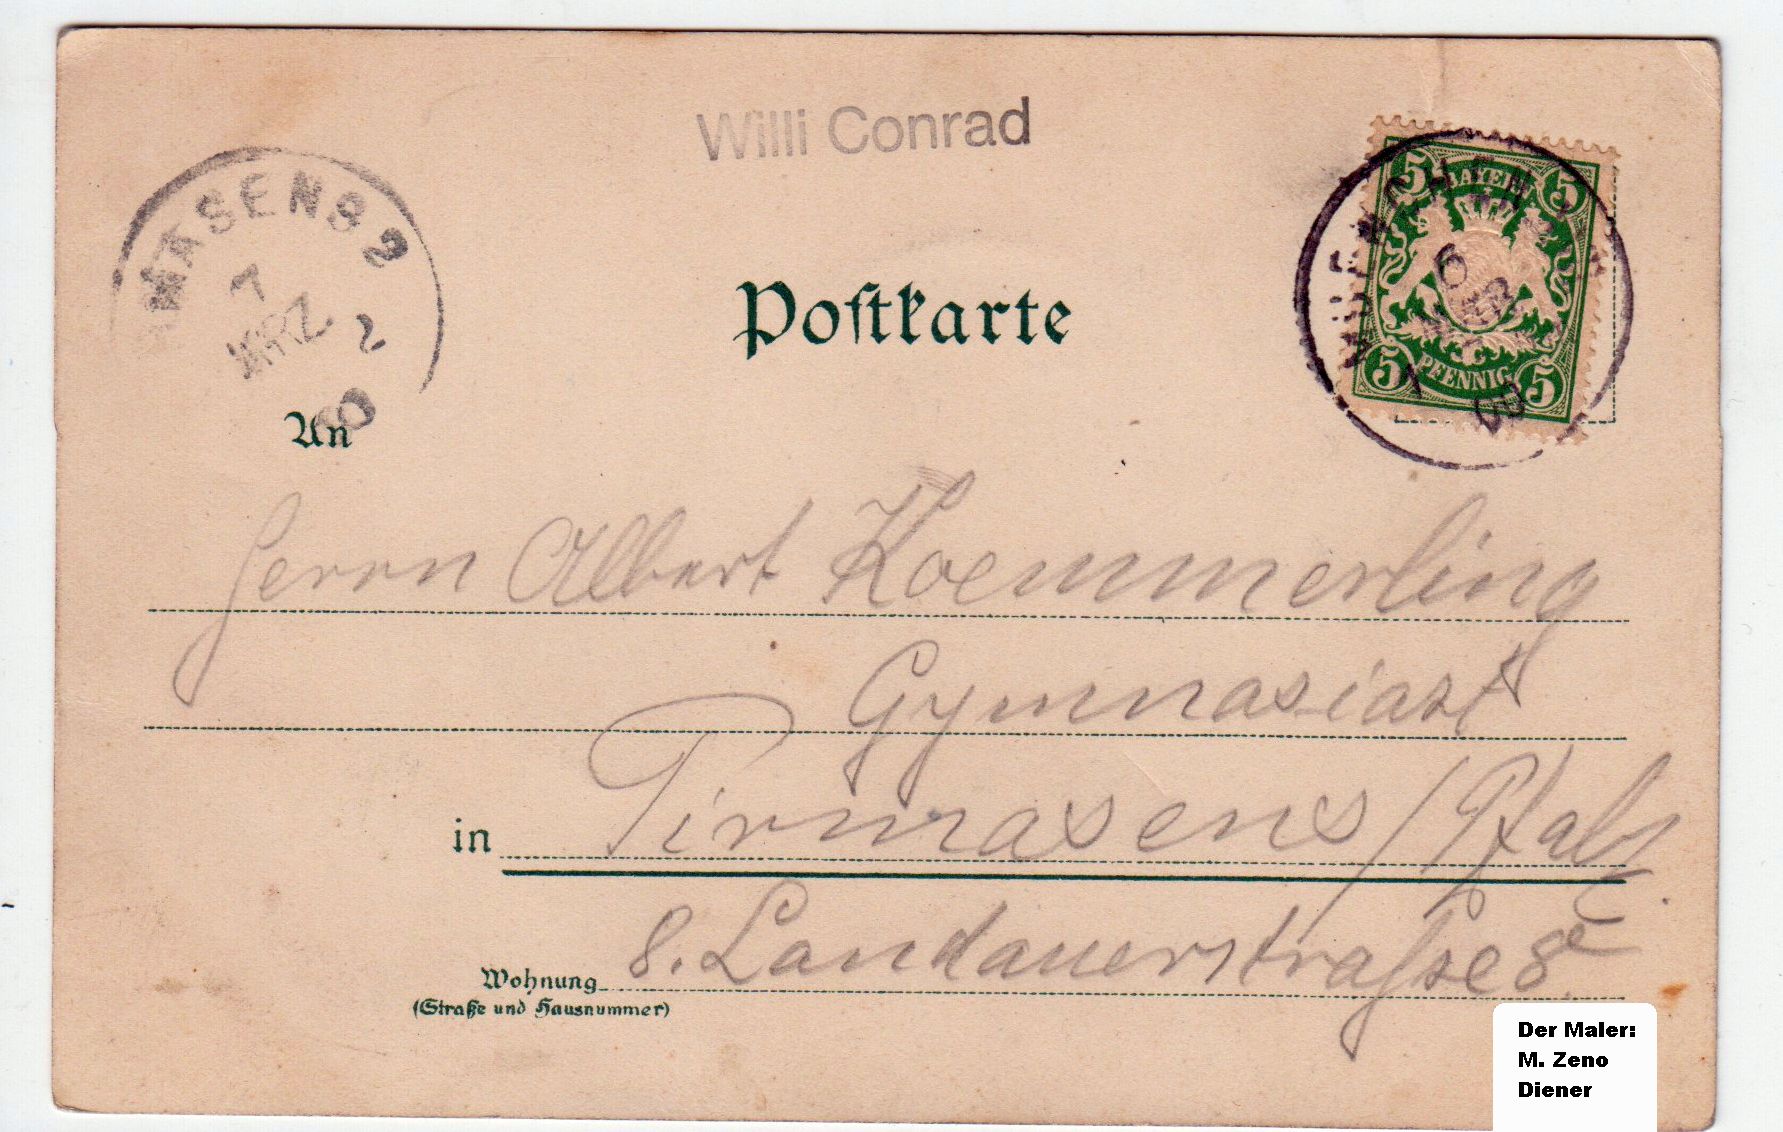 Willi Conrad
MASENS 2
7
MRZ
2
00
BAYERN
5 5
6
MRZ
PFENNIG
5 5
00
Postkarte
An
Herrn Albert Koemmerling
Gymnasiast
in Pirmasens / Pfalz.
Wohnung 8. Landauerstrasse 8
(Straße und Hausnummer)
Der Maler:
M. Zeno
Diener